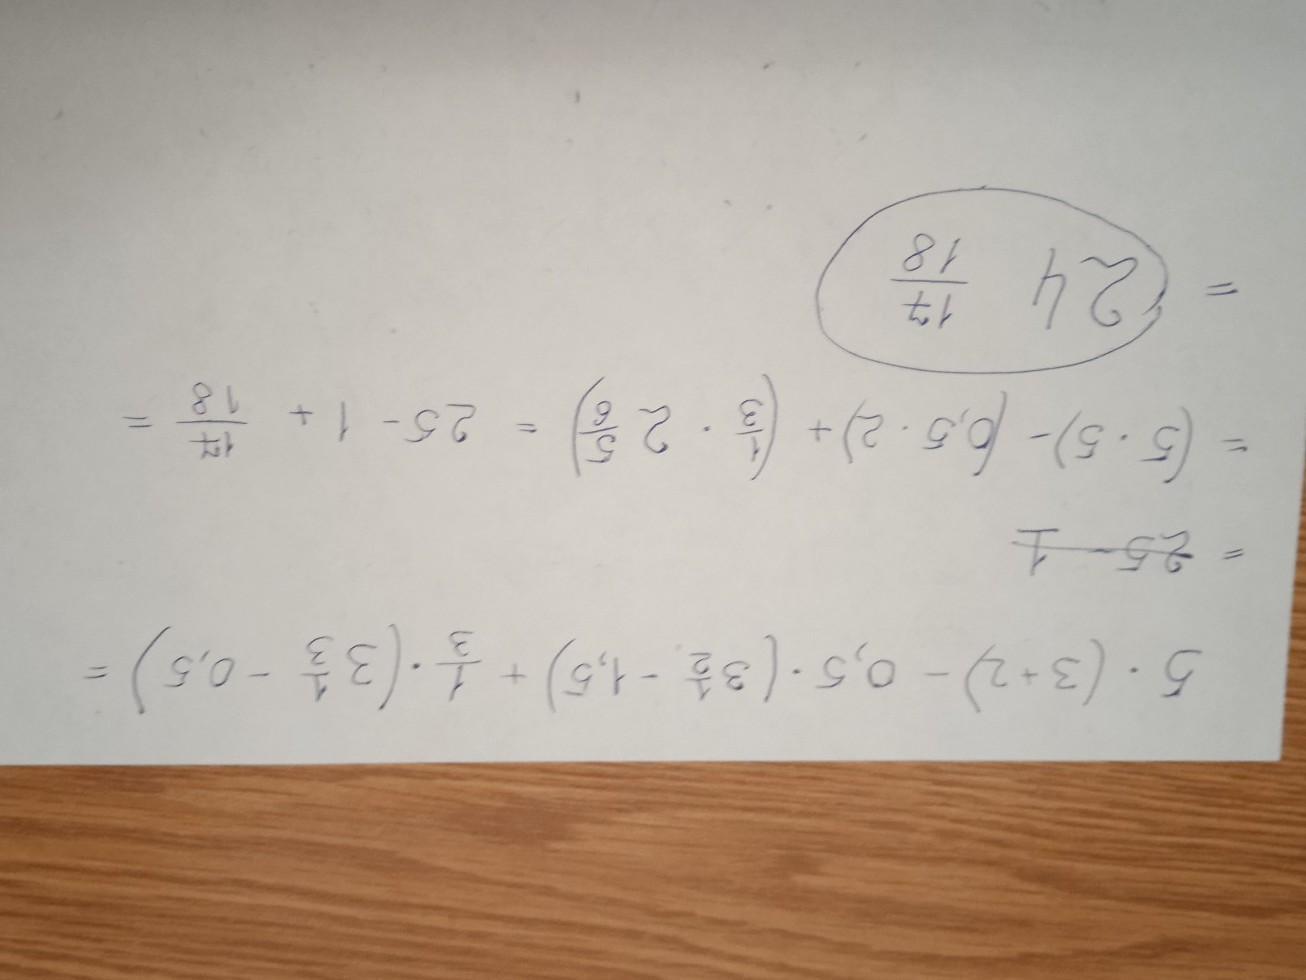 5 · (3+2) - 0,5 · (3 1/2 - 1,5) + 1/3 · (3 1/3 - 0,5) =
= 25 - 1
= (5 · 5) - (0,5 · 2) + (1/3 · 2 5/6) = 25 - 1 + 17/18 =
= 24 17/18